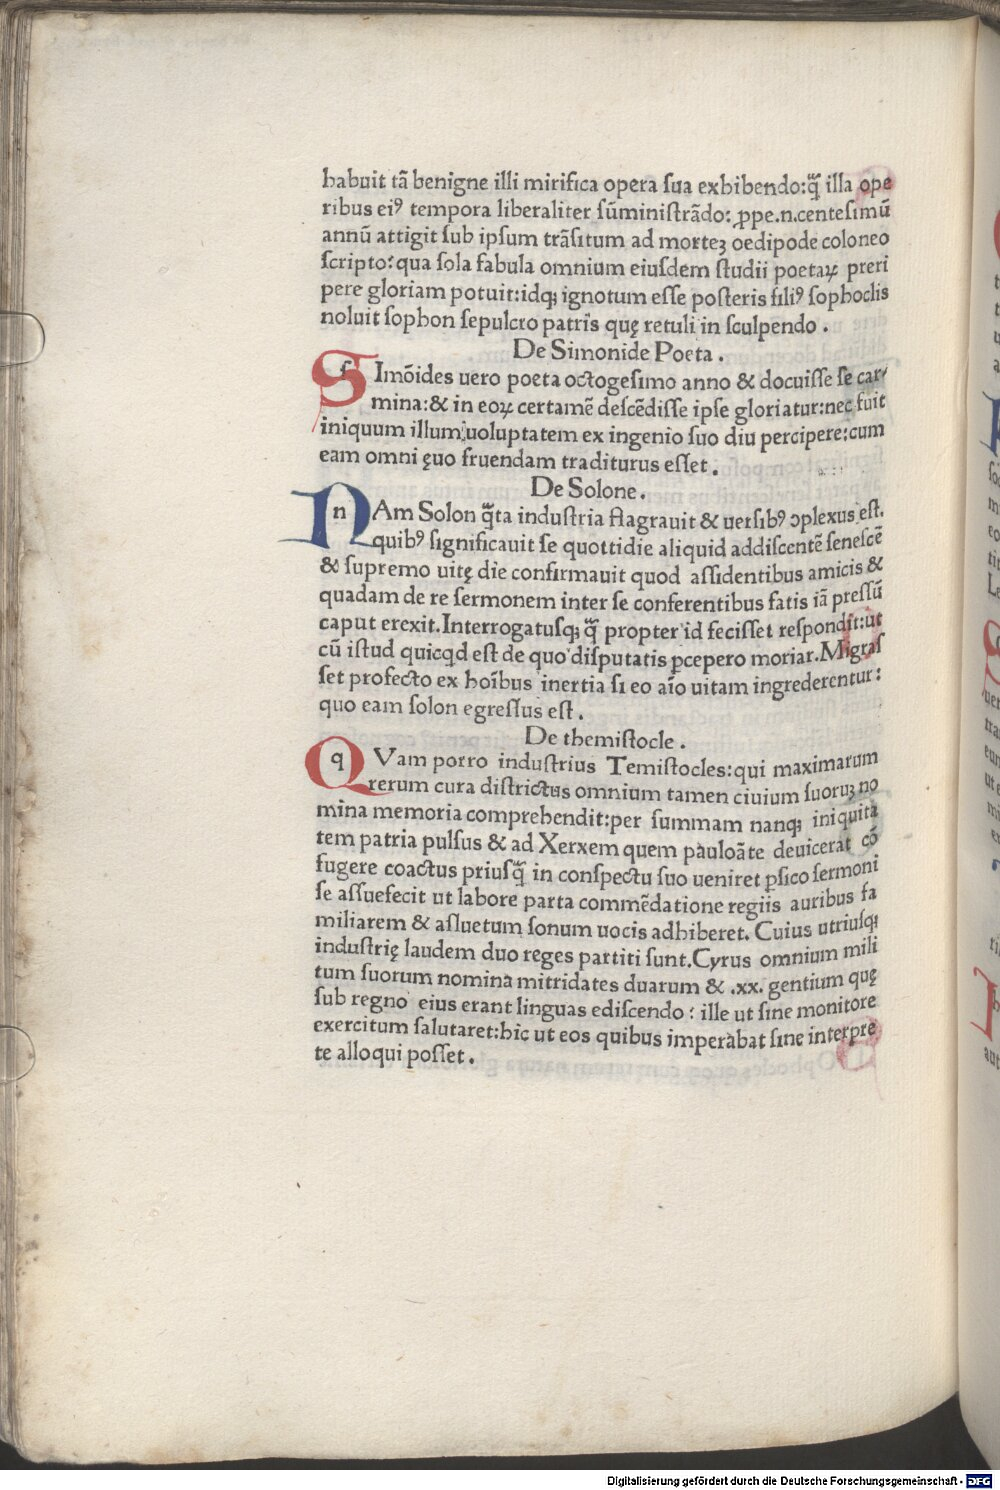 habuit tã benigne illi mirifica opera ſua exhibendo:q̃ illa ope
ribus eiꝰ tempora liberaliter ſũminiſtrãdo: ꝓpe.n.centeſimũ
annũ attigit ſub ipſum trãſitum ad morteꝫ oedipode coloneo
ſcripto:qua ſola fabula omnium eiuſdem ſtudii poetaꝝ preri
pere gloriam potuit:idqꝫ ignotum eſſe poſteris filiꝰ ſophoclis
noluit ſophon ſepulcro patris quę retuli in ſculpendo .
De Simonide Poeta .
SImõides uero poeta octogeſimo anno & docuiſſe ſe car⸗
mina:& in eoꝝ certamẽ deſcẽdiſſe ipſe gloriatur:nec fuit
iniquum illum uoluptatem ex ingenio ſuo diu percipere:cum
eam omni ęuo fruendam traditurus eſſet .
De Solone .
NAm Solon q̃ta induſtria flagrauit & uerſibꝰ ɔplexus eſt.
quibꝰ ſignificauit ſe quottidie aliquid addiſcentẽ ſeneſcẽ
& ſupremo uitę die confirmauit quod aſſidentibus amicis &
quadam de re ſermonem inter ſe conferentibus fatis iã preſſũ
caput erexit.Interrogatuſqꝫ q̃ propter id feciſſet reſpondit:ut
cũ iſtud quicqd eſt de quo diſputatis ꝑcepero moriar.Migraſ
ſet profecto ex hoĩbus inertia ſi eo aĩo uitam ingrederentur:
quo eam ſolon egreſſus eſt .
De themiſtocle .
QVam porro induſtrius Temiſtocles:qui maximarum
rerum cura diſtrictus omnium tamen ciuium ſuoruꝫ no
mina memoria comprehendit:per ſummam nanqꝫ iniquita
tem patria pulſus & ad Xerxem quem pauloãte deuicerat cõ
fugere coactus priuſq̃ in conſpectu ſuo ueniret ꝑſico ſermoni
ſe aſſuefecit ut labore parta commẽdatione regiis auribus fa
miliarem & aſſuetum ſonum uocis adhiberet. Cuius utriuſqꝫ
induſtrię laudem duo reges partiti ſunt.Cyrus omnium mili
tum ſuorum nomina mitridates duarum & .xx. gentium quę
ſub regno eius erant linguas ediſcendo : ille ut ſine monitore
exercitum ſalutaret:hic ut eos quibus imperabat ſine interpre
te alloqui poſſet .
Digitalisierung gefördert durch die Deutsche Forschungsgemeinschaft - DFG